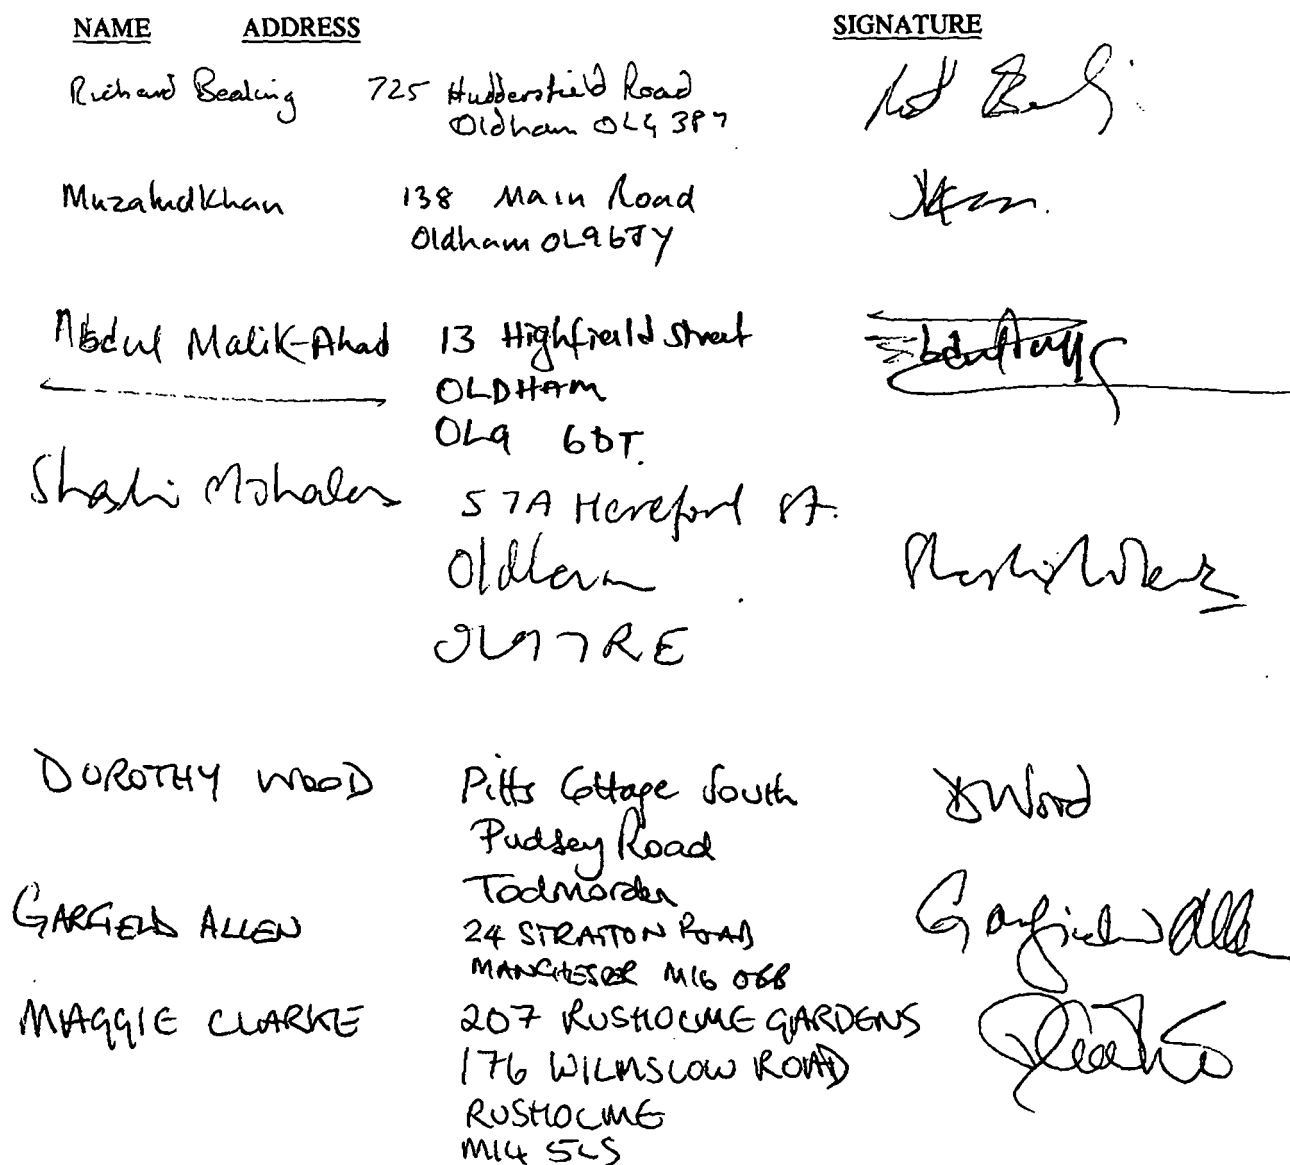 NAME ADDRESS SIGNATURE
Richard Bealing 725 Huddersfield Road
Oldham OL4 3PY
Muzahid Khan 138 Main Road
Oldham OL9 6JY
Abdul Malik-Ahad 13 Highfield Street
OLDHAM
OL9 6DT.
Shashi Mohales 57A Hereford St.
Oldham
OL9 7RE
DOROTHY WOOD Pitts Cottage South DWood
Pudsey Road
Todmorden
GARFIELD ALLEN 24 STRATTON ROAD Garfield Allen
MANCHESTER M16
MAGGIE CLARKE 207 RUSHOLME GARDENS
176 WILMSLOW ROAD
RUSHOLME
M14 5LS